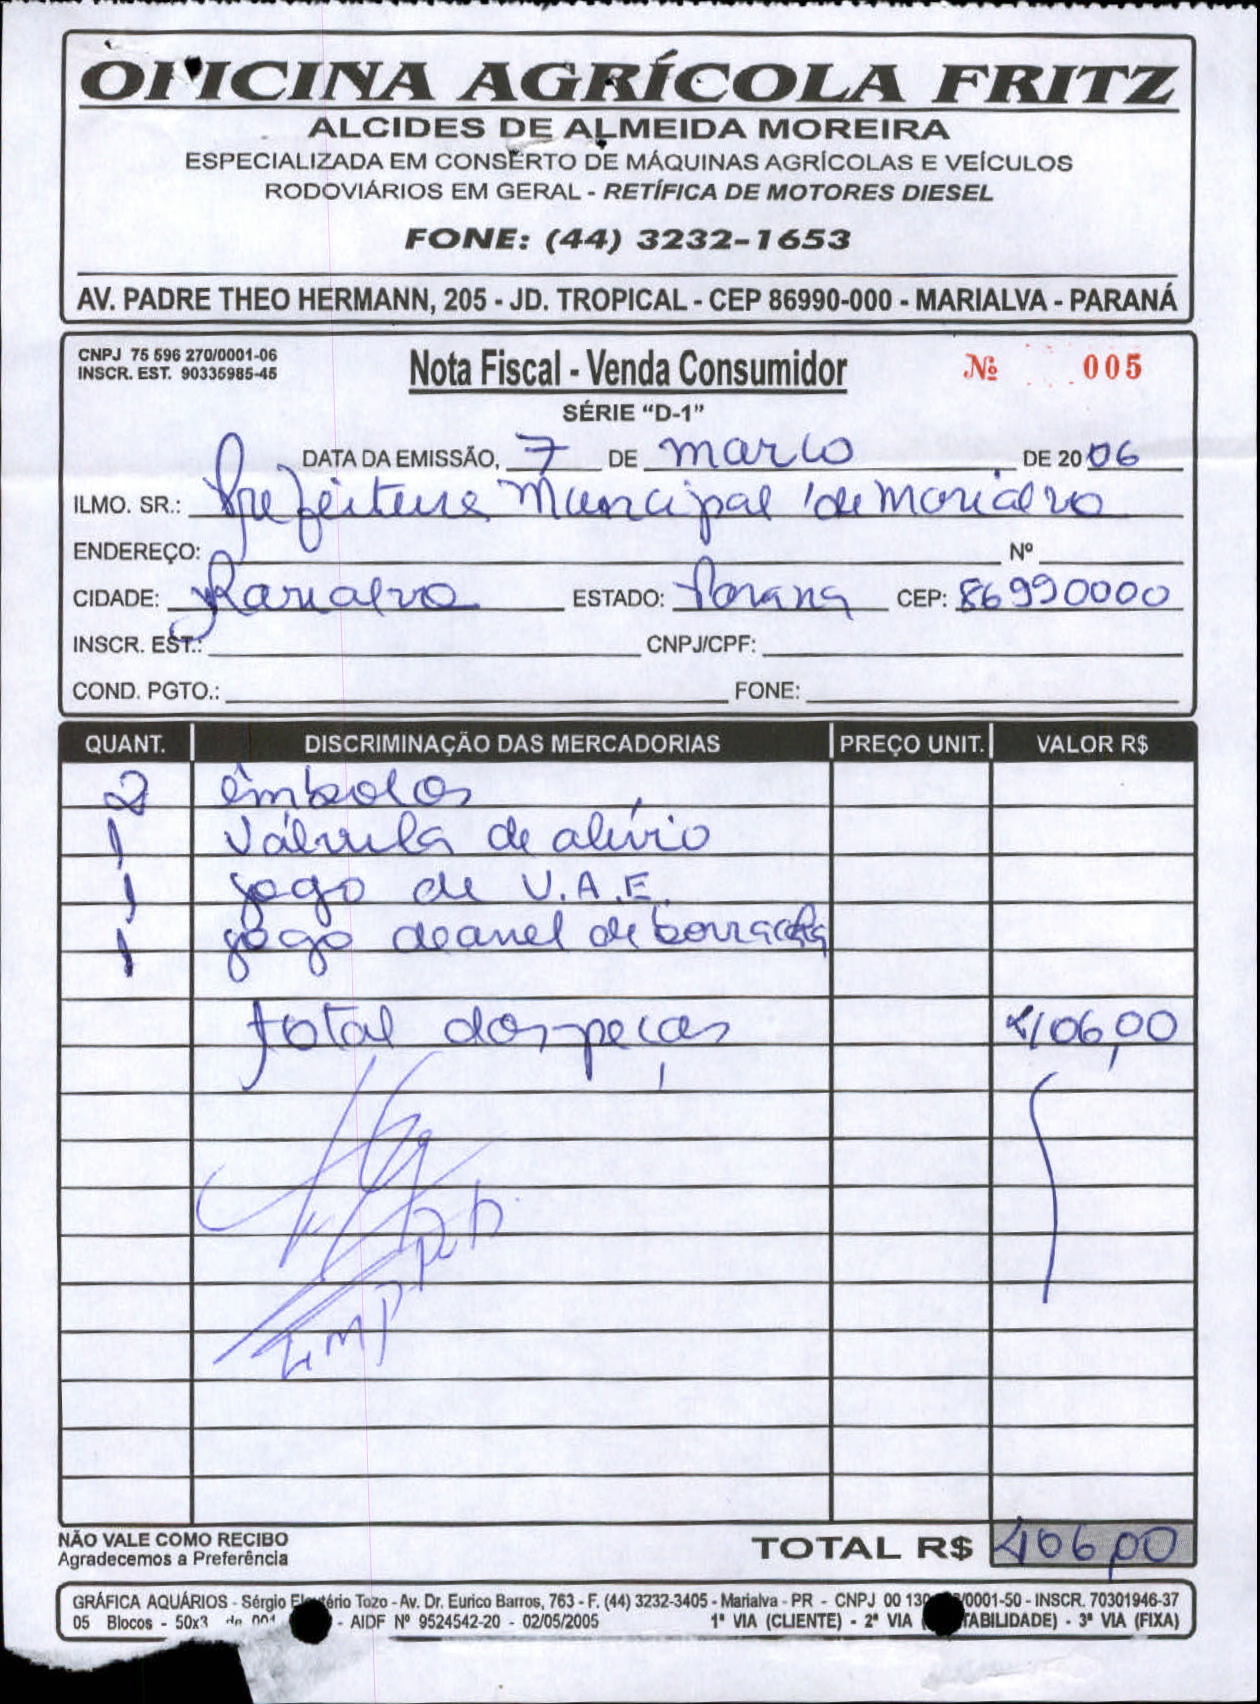 OFICINA AGRÍCOLA FRITZ
ALCIDES DE ALMEIDA MOREIRA
ESPECIALIZADA EM CONSERTO DE MÁQUINAS AGRÍCOLAS E VEÍCULOS
RODOVIÁRIOS EM GERAL - RETÍFICA DE MOTORES DIESEL
FONE: (44) 3232-1653
AV. PADRE THEO HERMANN, 205 - JD. TROPICAL - CEP 86990-000 - MARIALVA - PARANÁ
CNPJ 75 596 270/0001-06
INSCR. EST. 90335985-45
Nota Fiscal - Venda Consumidor
Nº 005
SÉRIE "D-1"
DATA DA EMISSÃO, 7 DE marco DE 2006
ILMO. SR.: Prefeitura Municipal de Marialva
ENDEREÇO: Nº
CIDADE: Marialva ESTADO: Parana CEP: 86990000
INSCR. EST.: CNPJ/CPF:
COND. PGTO.: FONE:
QUANT. DISCRIMINAÇÃO DAS MERCADORIAS PREÇO UNIT. VALOR R$
2 êmbolos
1 Válvula de alívio
1 jogo de V.A.E.
1 jogo de anel de borracha
total das peças 406,00
NÃO VALE COMO RECIBO
Agradecemos a Preferência
TOTAL R$ 406,00
GRÁFICA AQUÁRIOS - Sérgio Tozo - Av. Dr. Eurico Barros, 763 - F. (44) 3232-3405 - Marialva - PR - CNPJ 00 130 /0001-50 - INSCR. 70301946-37
05 Blocos - 50x3 de 001 - AIDF Nº 9524542-20 - 02/05/2005 1ª VIA (CLIENTE) - 2ª VIA TABILIDADE) - 3ª VIA (FIXA)